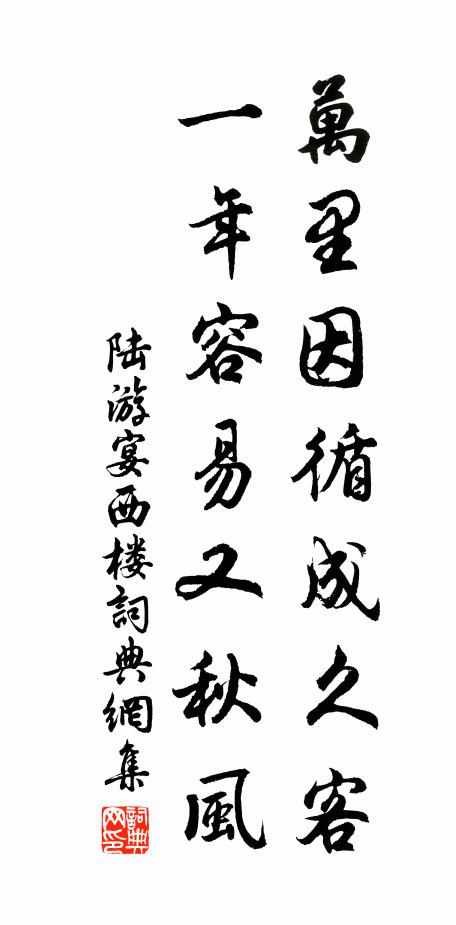 萬里因循成久客
一年容易又秋風
陆游宴西楼詞典網集
詞典网印